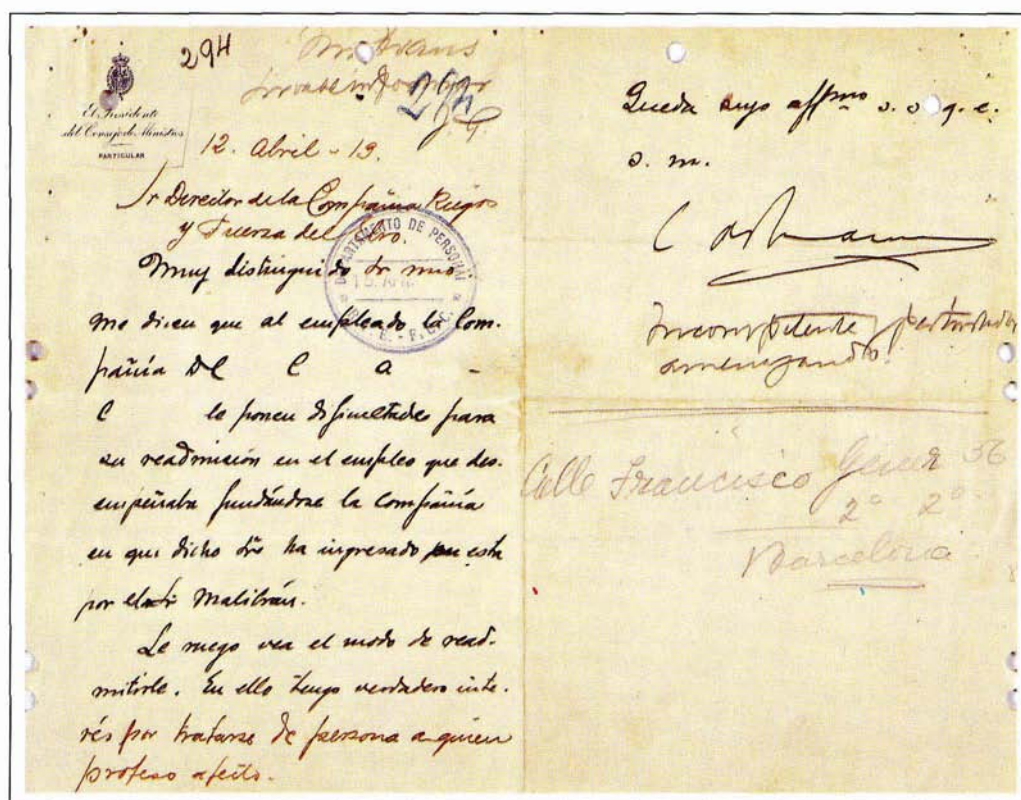 294
El Presidente
del Consejo de Ministros
PARTICULAR
12. Abril - 19.
Sr Director de la Compañia Riegos
y Fuerza del Ebro.
Muy distinguido Sr mio
me dicen que al empleado la Com-
pañía D C A -
C le ponen dificultades para
su readmisión en el empleo que des-
empeñaba fundándose la Compañía
en que dicho Sr ha ingresado en esta
por el Sr Malibrán.
Le ruego vea el modo de read-
mitirle. En ello tengo verdadero inte-
rés por tratarse de persona a quien
profeso afecto.
DEPARTAMENTO DE PERSONAL
Queda suyo affmo s. s. q. e.
s. m.
Incompetente
amenazando.
Calle Francisco Giner 56
2º 2º
Barcelona